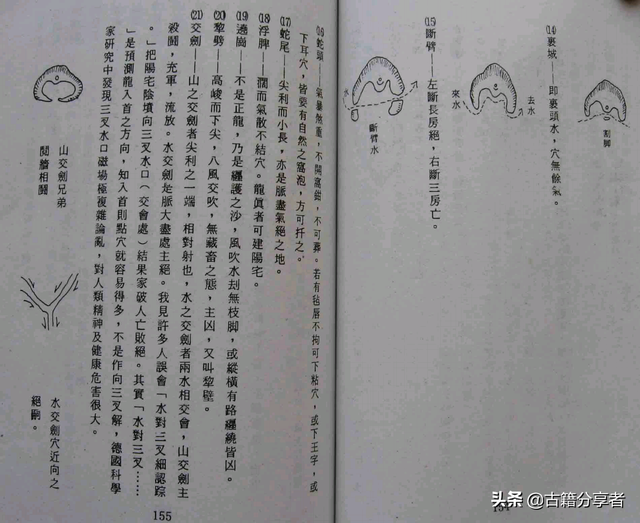 ⒁裏城——即裏頭水，穴無餘氣。
割脚
去水
來水
⒂斷臂——左斷長房絕，右斷三房亡。
水
斷臂水
⒃蛇頭——氣暴煞重，不開窩鉗，不可葬。若有毡唇不拘可下粘穴，或下王字，或
下耳穴，皆要有自然之窩泡，方可扦之。
⒄蛇尾——尖利而小長，亦是脈盡氣絕之地。
⒅浮脾——濶而氣散不結穴。龍眞者可建陽宅。
⒆遶崗——不是正龍，乃是纒護之沙，風吹水刦無枝脚，或縱橫有路纒繞皆凶。
⒇犂劈——高峻而下尖，八風交吹，無藏畜之態，主凶，又叫犂壁。
(21)交劍——山之交劍者尖利之一端，相對射也，水之交劍者兩水相交會，山交劍主
殺鬪，充軍，流放。水交劍是脈大盡處主絕。我見許多人誤會「水對三叉細認踪
。」把陽宅陰墳向三叉水口（交會處）結果家破人亡敗絕。其實「水對三叉……
」是預測龍入首之方向，知入首則點穴就容易得多，不是作向三叉解，德國科學
家研究中發現三叉水口磁場極複雜論亂，對人類精神及健康危害很大。
山交劍兄弟
鬩牆相鬪
水交劍穴近向之
絕嗣。
155
154
头条 @古籍分享者